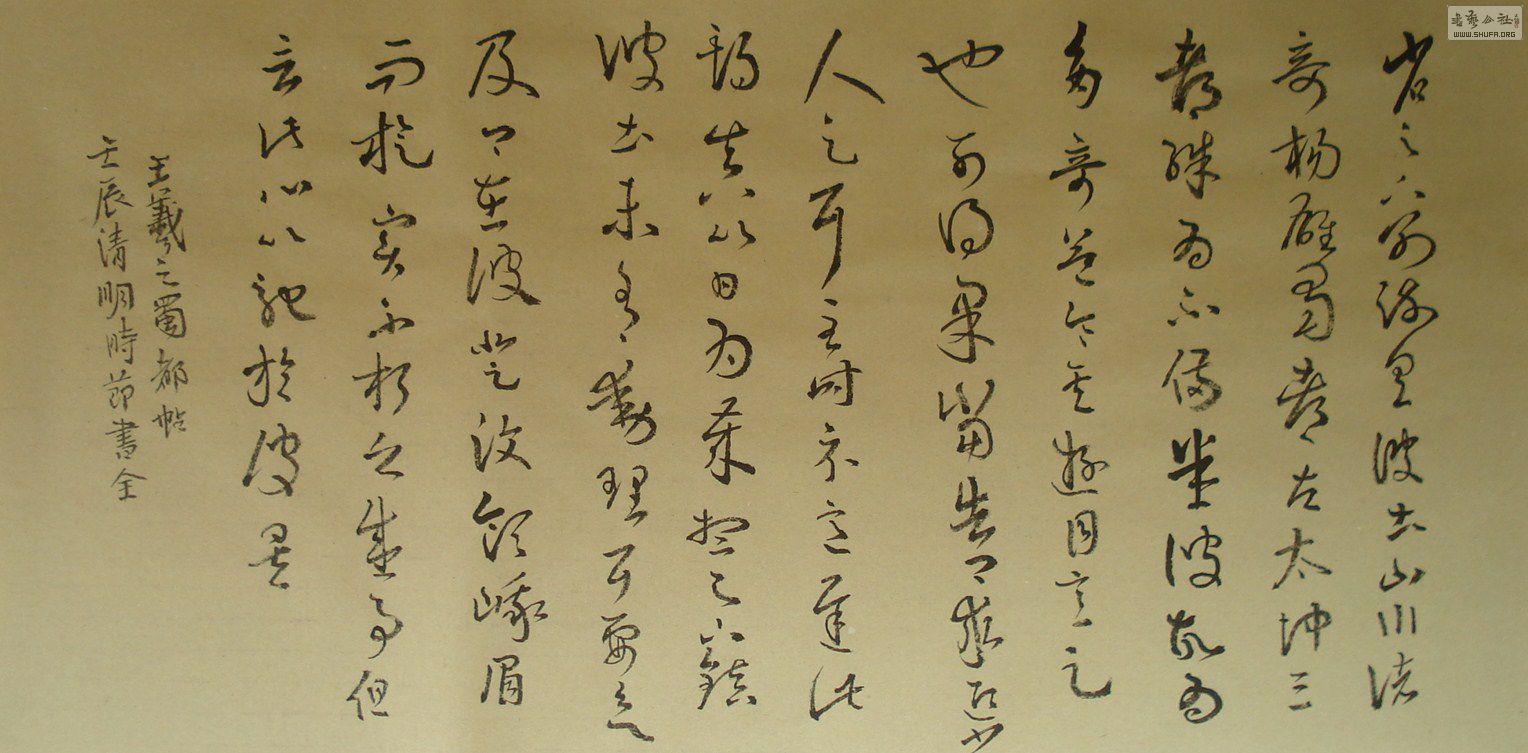 省足下別疏具彼土山川諸
奇楊雄蜀都左太沖三
都殊為不備悉彼故為
多奇益令其遊目意足
也可得果當告卿求迎少
人足耳至時示意遲此
期真以日為歲想足下鎮
彼土未有動理耳要欲
及卿在彼登汶領峨眉
而旋實不朽之盛事但
言此心以馳於彼矣
王羲之蜀都帖
壬辰清明時節書全
書藝公社
WWW.SHUFA.ORG